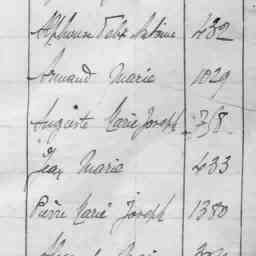 Alphonse Félix Antoine 482
Armand Marie 1029
Auguste Marie Joseph 318
Jean Marie 433
Pierre Marie Joseph 1380